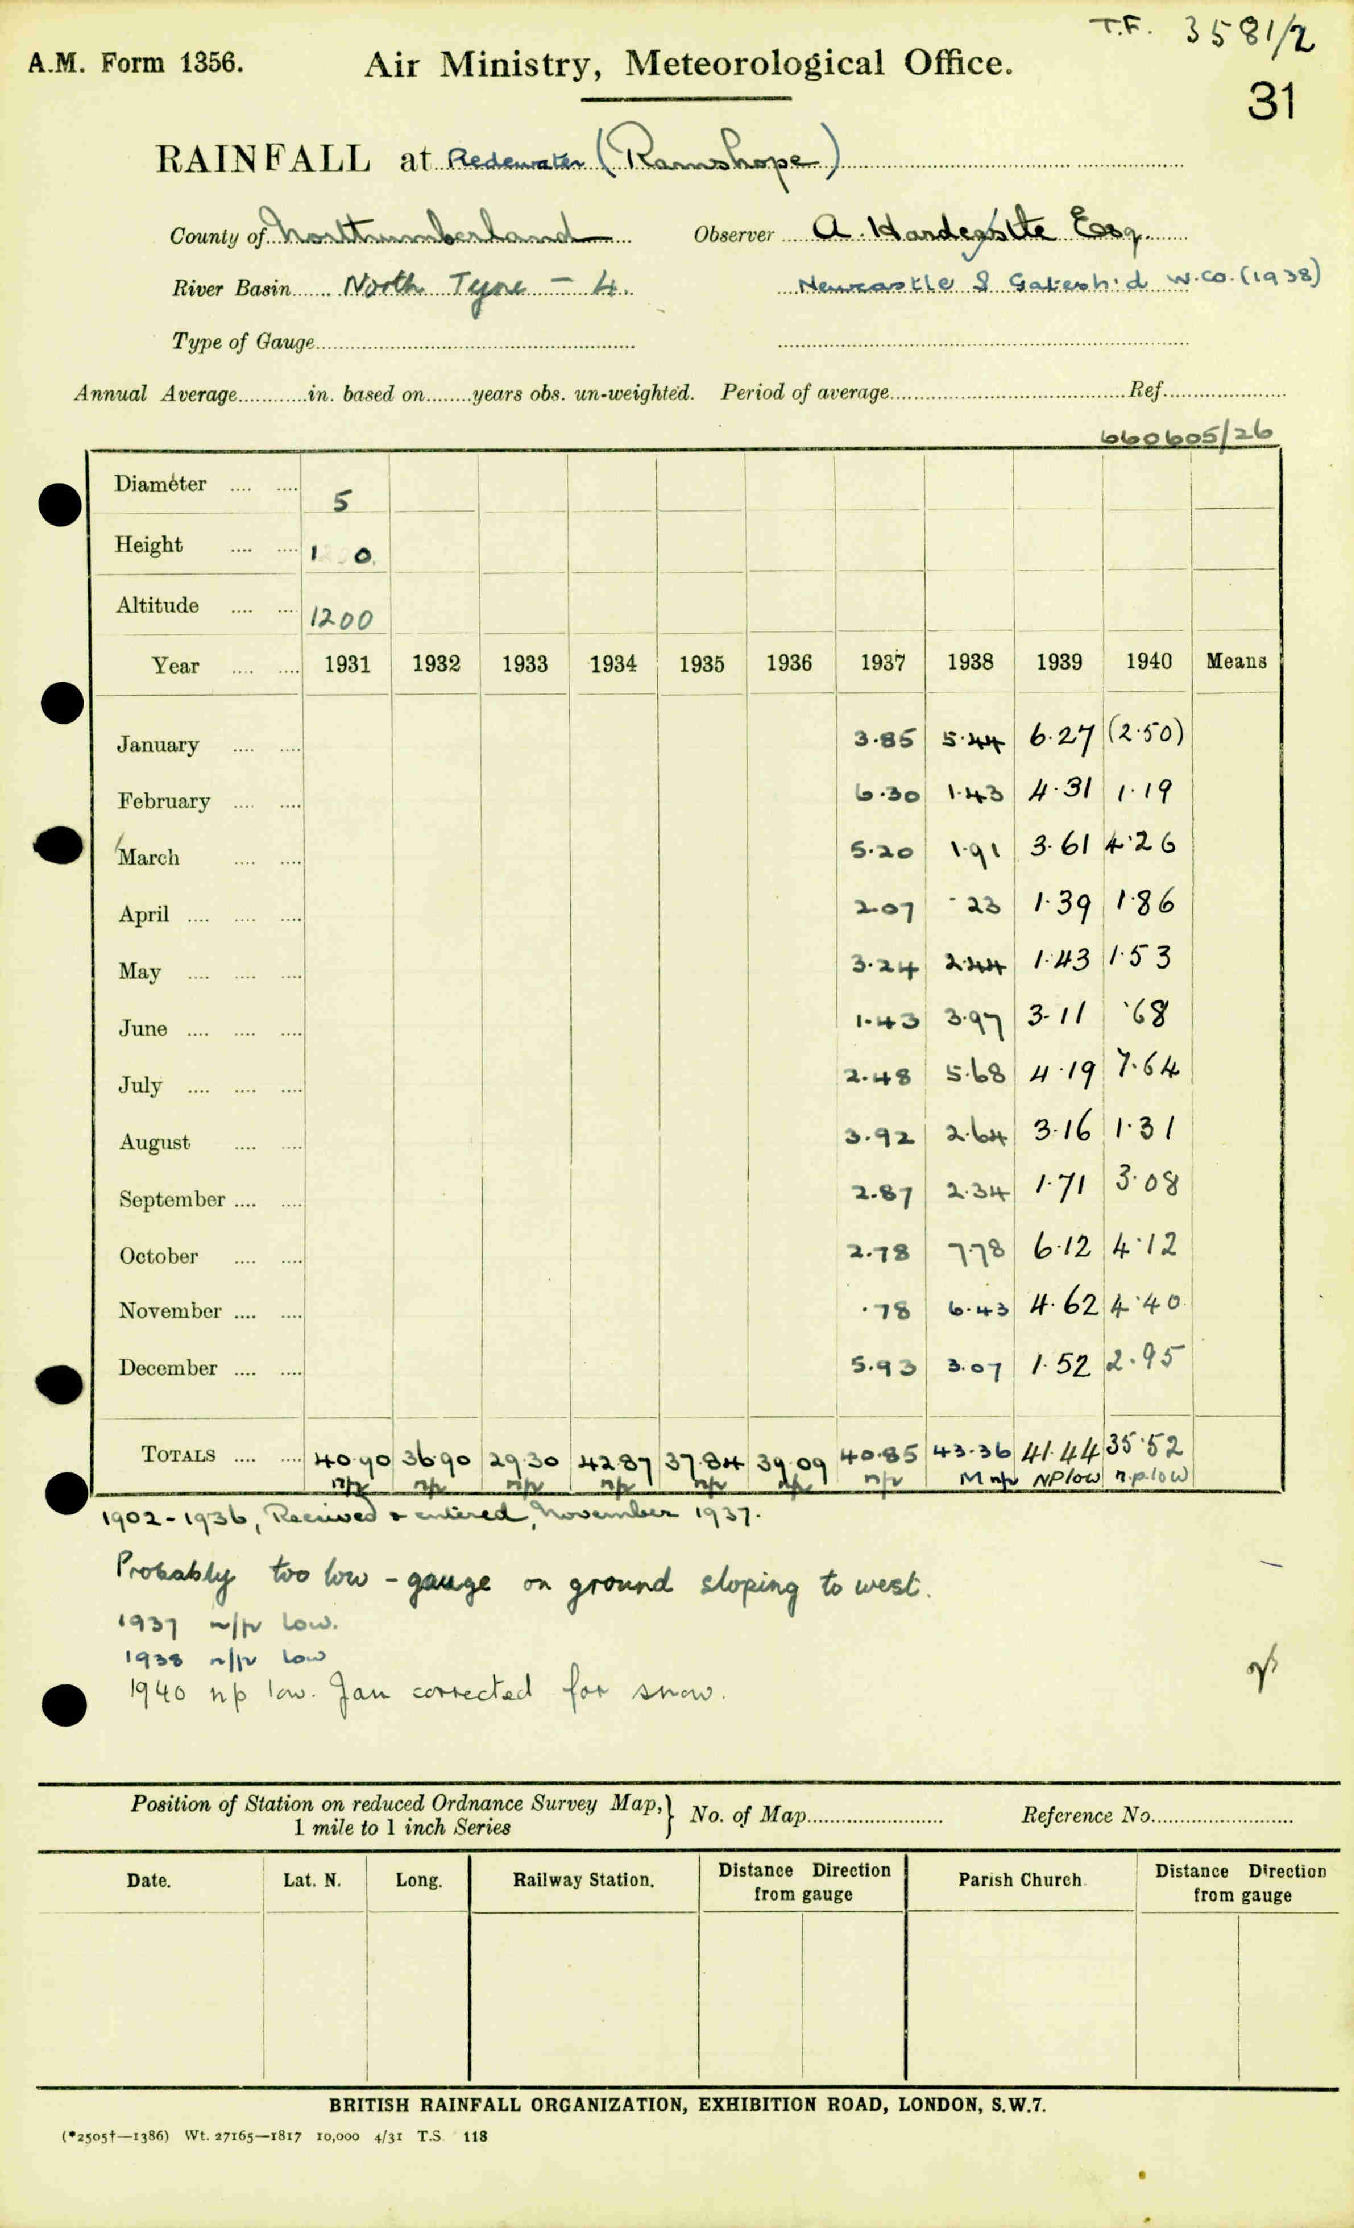 T.F. 3581/2
A.M. Form 1356. Air Ministry, Meteorological Office.
31
RAINFALL at Redewater (Ramshope)
County of Northumberland Observer A. Hardcastle Esq.
River Basin North Tyne - 4. Newcastle & Gateshd W.Co. (1938)
Type of Gauge
Annual Average in. based on years obs. un-weighted. Period of average Ref.
660605/26
Diameter 5
Height 1 0
Altitude 1200
Year 1931 1932 1933 1934 1935 1936 1937 1938 1939 1940 Means
January 3.85 5.44 6.27 (2.50)
February 6.30 1.43 4.31 1.19
March 5.20 1.91 3.61 4.26
April 2.07 .23 1.39 1.86
May 3.24 2.44 1.43 1.53
June 1.43 3.97 3.11 .68
July 2.48 5.68 4.19 7.64
August 3.92 2.64 3.16 1.31
September 2.87 2.34 1.71 3.08
October 2.78 7.78 6.12 4.12
November .78 6.43 4.62 4.40
December 5.93 3.07 1.52 2.95
TOTALS 40.90 36.90 29.30 42.87 37.84 39.09 40.85 43.36 41.44 35.52
n/p n/p n/p n/p n/p n/p n/p M n/p NP low n.p. low
1902-1936, Received & entered, November 1937.
Probably too low - gauge on ground sloping to west.
1937 n/p low.
1938 n/p low
1940 np low. Jan corrected for snow.
Position of Station on reduced Ordnance Survey Map, } No. of Map Reference No.
1 mile to 1 inch Series
Date. Lat. N. Long. Railway Station. Distance Direction from gauge Parish Church. Distance Direction from gauge
BRITISH RAINFALL ORGANIZATION, EXHIBITION ROAD, LONDON, S.W.7.
(*2505†—1386) Wt. 27165—1817 10,000 4/31 T.S. 118